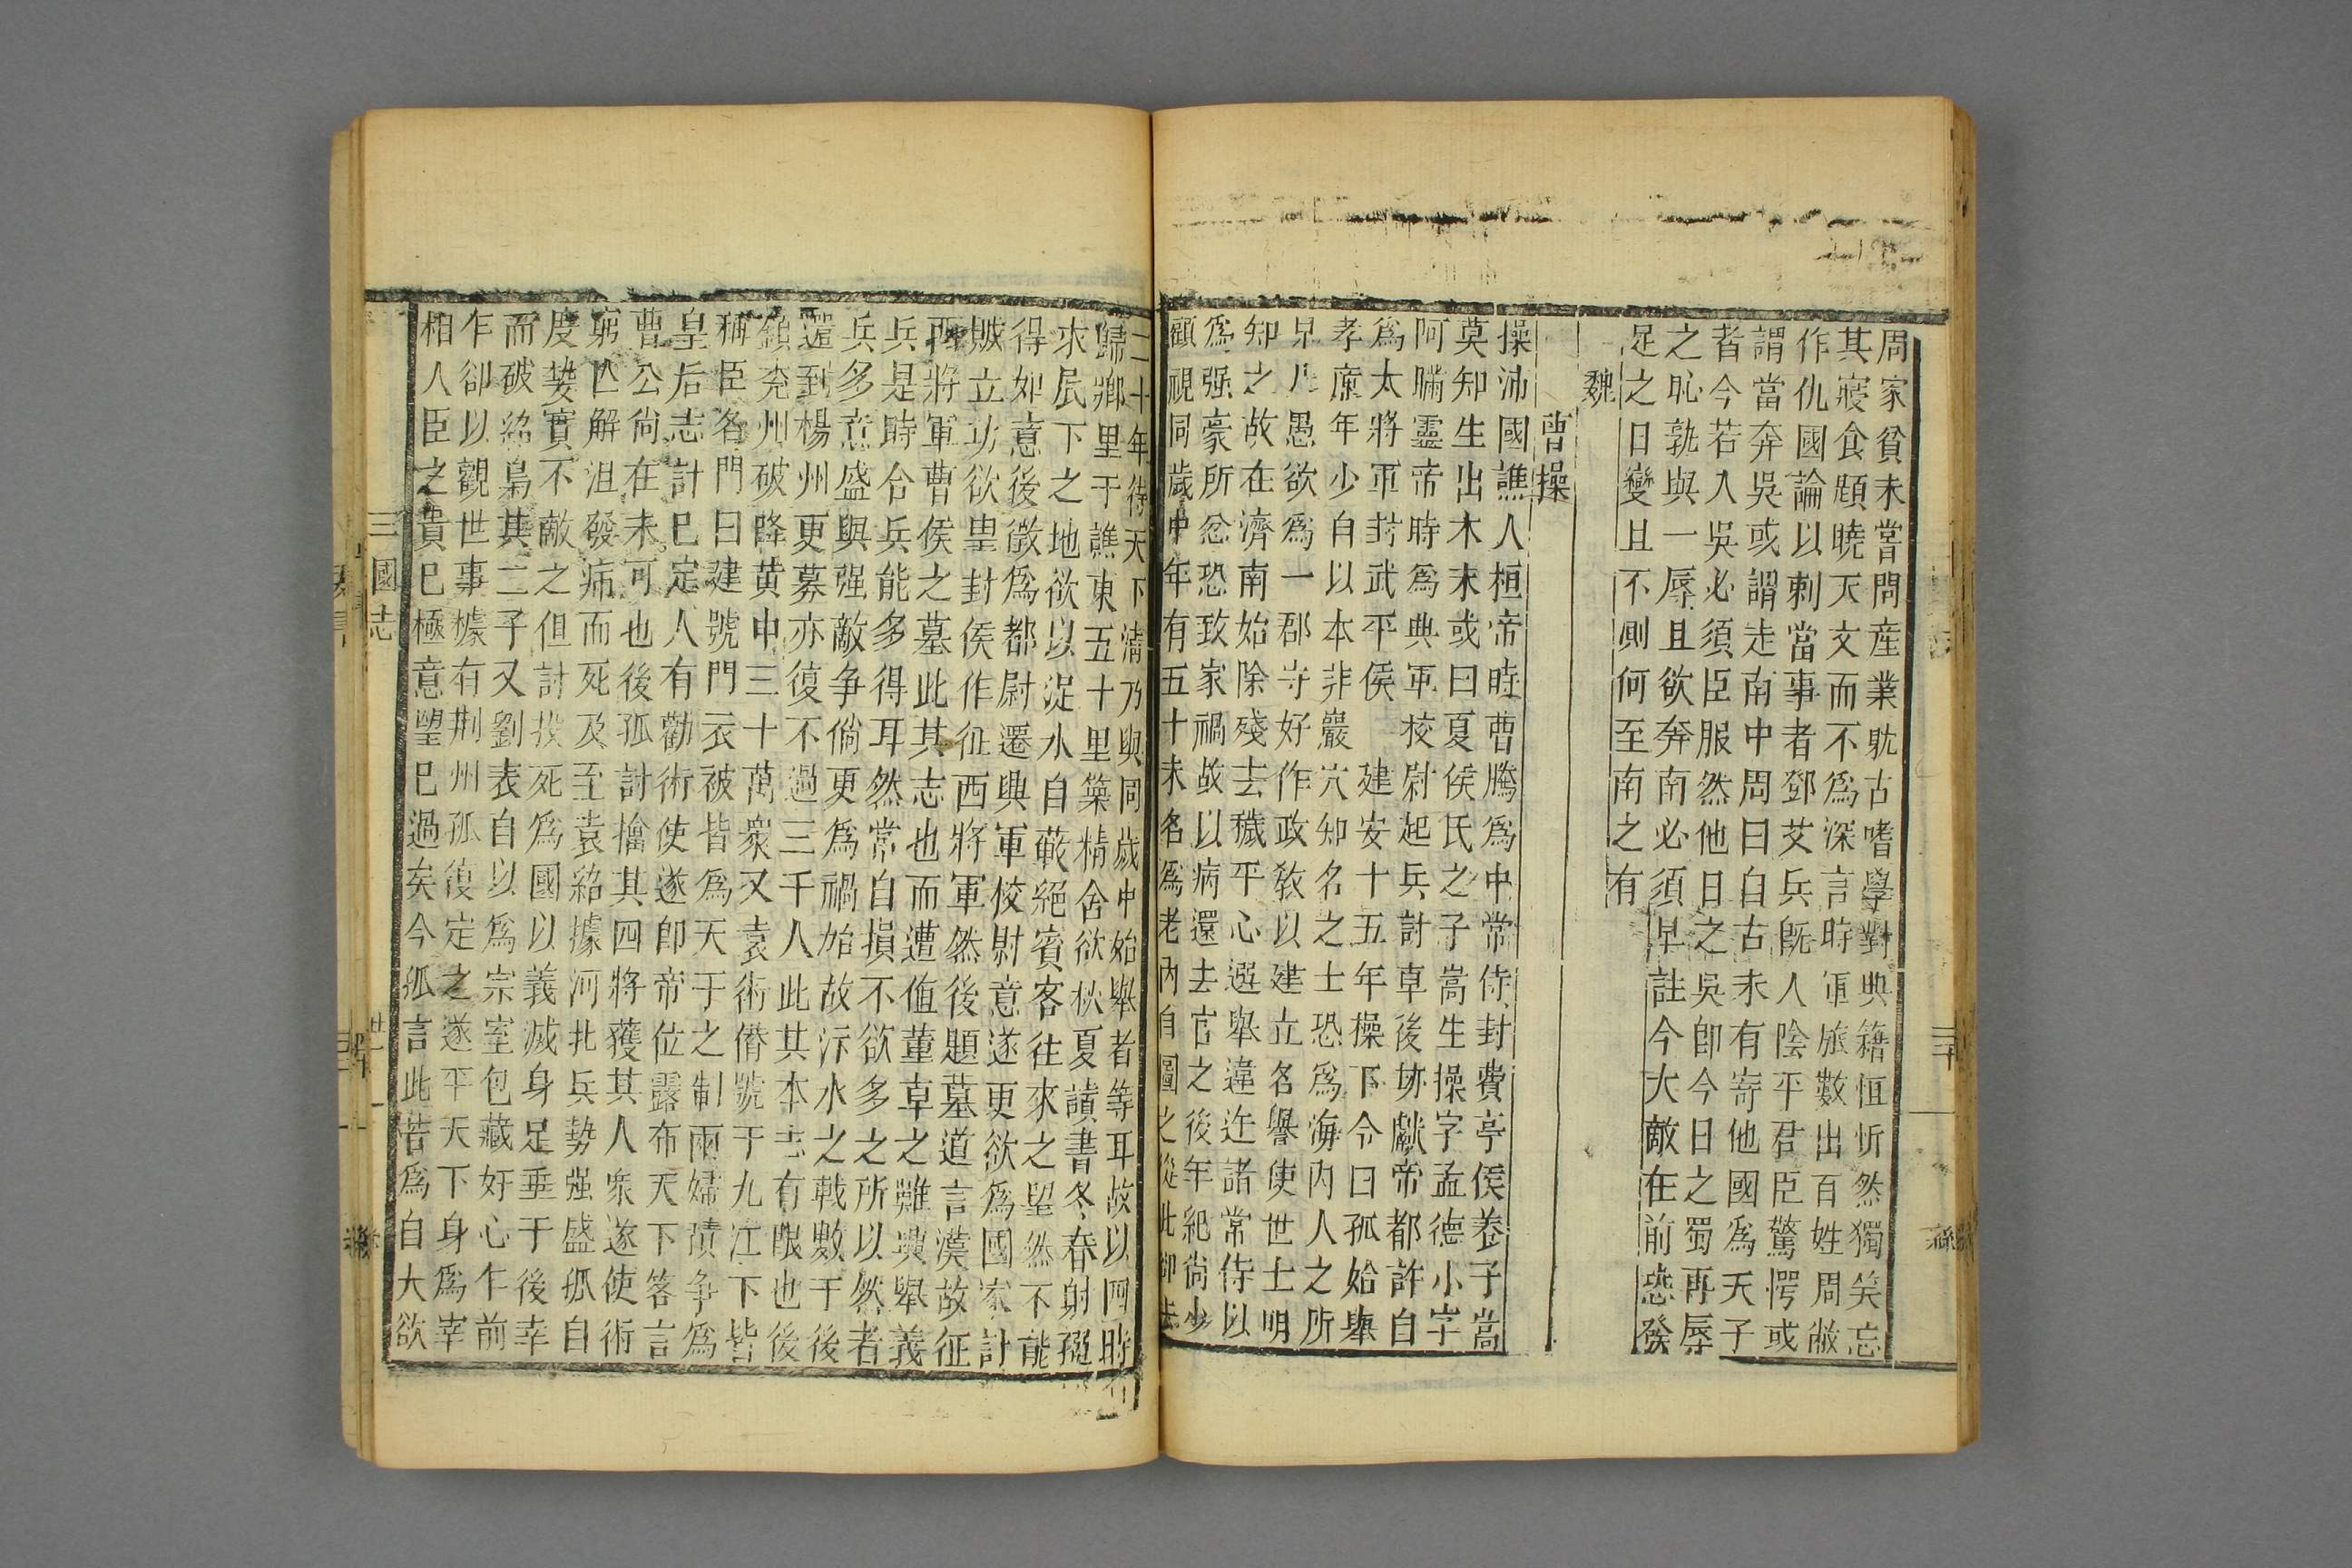 周家貧未嘗問産業耽古嗜學對典籍恒忻然獨笑忘
其寢食頗曉天文而不爲深言時軍旅數出百姓周敝
作仇國論以刺當事者鄧艾兵既入陰平君臣驚愕或
謂當奔吳或謂走南中周曰自古未有寄他國爲天子
者今若入吳必須臣服然他日之吳即今日之蜀再辱
之恥孰與一辱且欲奔南必須早註今大敵在前恐發
足之日變且不測何至南之有
魏
曹操
操沛國譙人桓帝時曹騰爲中常侍封費亭侯養子嵩
莫知生出本末或曰夏侯氏之子嵩生操字孟德小字
阿瞞靈帝時爲典軍校尉起兵討卓後迎獻帝都許自
爲太將軍封武平侯 建安十五年操下令曰孤始舉
孝廉年少自以本非巖穴知名之士恐爲海内人之所
見凡愚欲爲一郡守好作政教以建立名譽使世士明
知之故在濟南始除殘去穢平心選舉違迕諸常侍以
爲强豪所忿恐致家禍故以病還去官之後年紀尚少
顧視同歲中年有五十未名爲老内自圖之從此卻去
二十年待天下淸乃與同歲中始舉者等耳故以四時
歸鄉里于譙東五十里築精舍欲秋夏讀書冬春射獵
求底下之地欲以泥水自蔽絕賓客往來之望然不能
得如意後徵爲都尉遷典軍校尉意遂更欲爲國家計
賊立功欲望封侯作征西將軍然後題墓道言漢故征
西將軍曹侯之墓此其志也而遭值董卓之難興舉義
兵是時合兵能多得耳然常自損不欲多之所以然者
兵多意盛與强敵争倘更爲禍始故汴水之戰數千後
還到楊州更募亦復不過三千人此其本志有限也後
領兖州破降黄巾三十萬衆又袁術僭號于九江下皆
稱臣名門曰建號門衣被皆爲天子之制兩婦預争爲
皇后志計已定人有勸術使遂即帝位露布天下答言
曹公尚在未可也後孤討擒其四將獲其人衆遂使術
窮亡解沮發病而死及至袁紹據河北兵勢强盛孤自
度勢實不敵之但計投死爲國以義滅身足垂于後幸
而破紹梟其二子又劉表自以爲宗室包藏奸心乍前
乍卻以觀世事據有荆州孤復定之遂平天下身爲宰
相人臣之貴已極意望已過矣今孤言此若爲自大欲
三國志